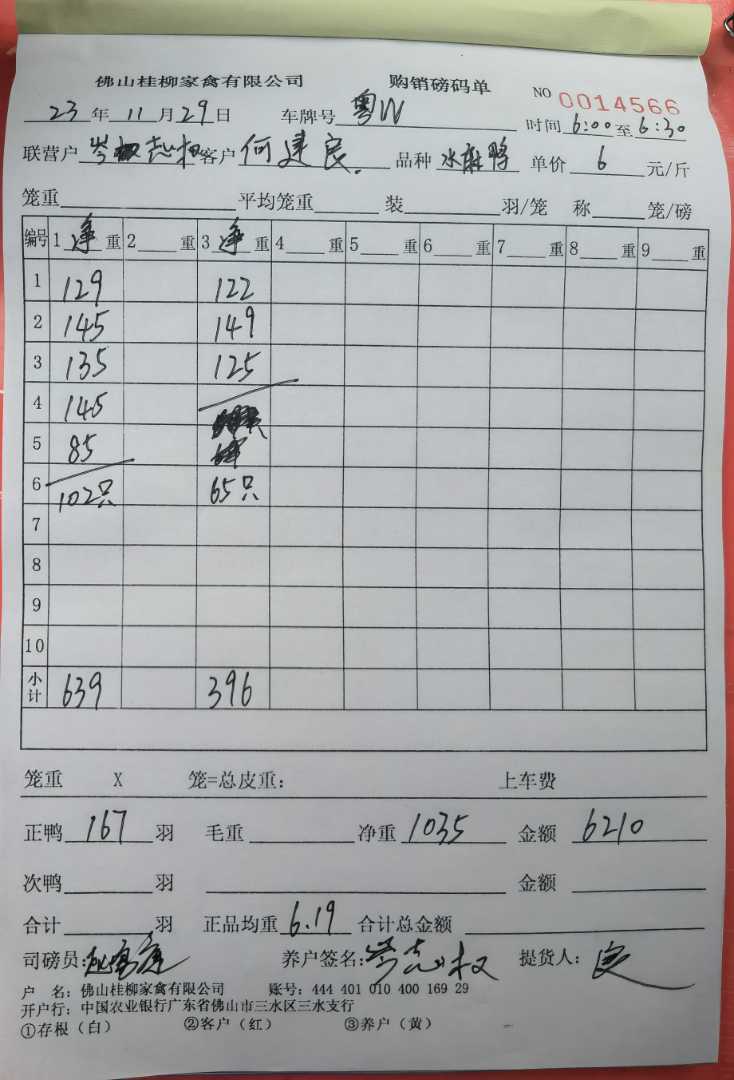 佛山桂柳家禽有限公司 购销磅码单 NO 0014566
23 年 11 月 29 日 车牌号 粤W 时间 6:00 至 6:30
联营户 岑志权 客户 何建良 品种 水麻鸭 单价 6 元/斤
笼重 平均笼重 装 羽/笼 称 笼/磅
编号 1 净 重 2 重 3 净 重 4 重 5 重 6 重 7 重 8 重 9 重
1 129 122
2 145 149
3 135 125
4 145
5 85
6 102只 65只
7
8
9
10
小计 639 396
笼重 X 笼=总皮重: 上车费
正鸭 167 羽 毛重 净重 1035 金额 6210
次鸭 羽 金额
合计 羽 正品均重 6.19 合计总金额
司磅员: 养户签名: 岑志权 提货人: 良
户 名: 佛山桂柳家禽有限公司 账号: 444 401 010 400 169 29
开户行: 中国农业银行广东省佛山市三水区三水支行
①存根（白） ②客户（红） ③养户（黄）